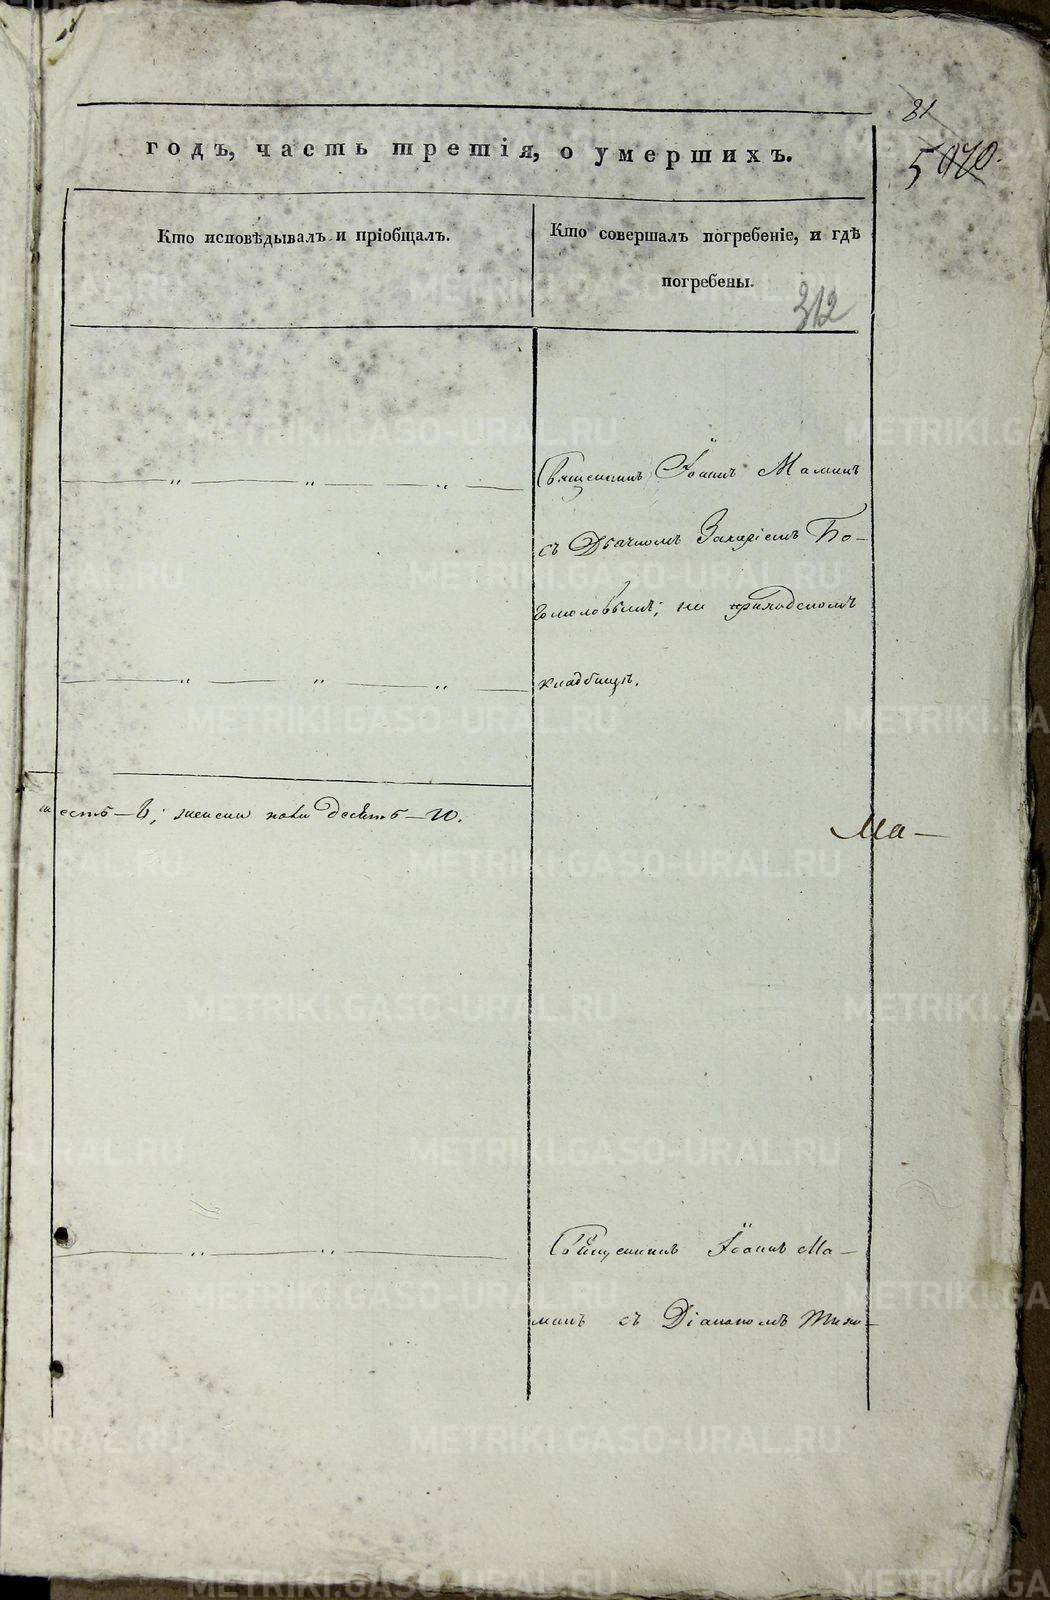 81
5070.
годъ, часть третія, о умершихъ.
Кто исповѣдывалъ и пріобщалъ.
Кто совершалъ погребеніе, и гдѣ
погребены.
312
Священникъ Іоаннъ Маминъ
съ Дьячкомъ Захаріемъ Бо-
голюбовымъ; на приходскомъ
кладбищѣ.
шесть – 6; женска пола десять – 10.
Ма-
Священникъ Іоаннъ Ма-
минъ съ Діакономъ Тихо-
METRIKI.GASO-URAL.RU